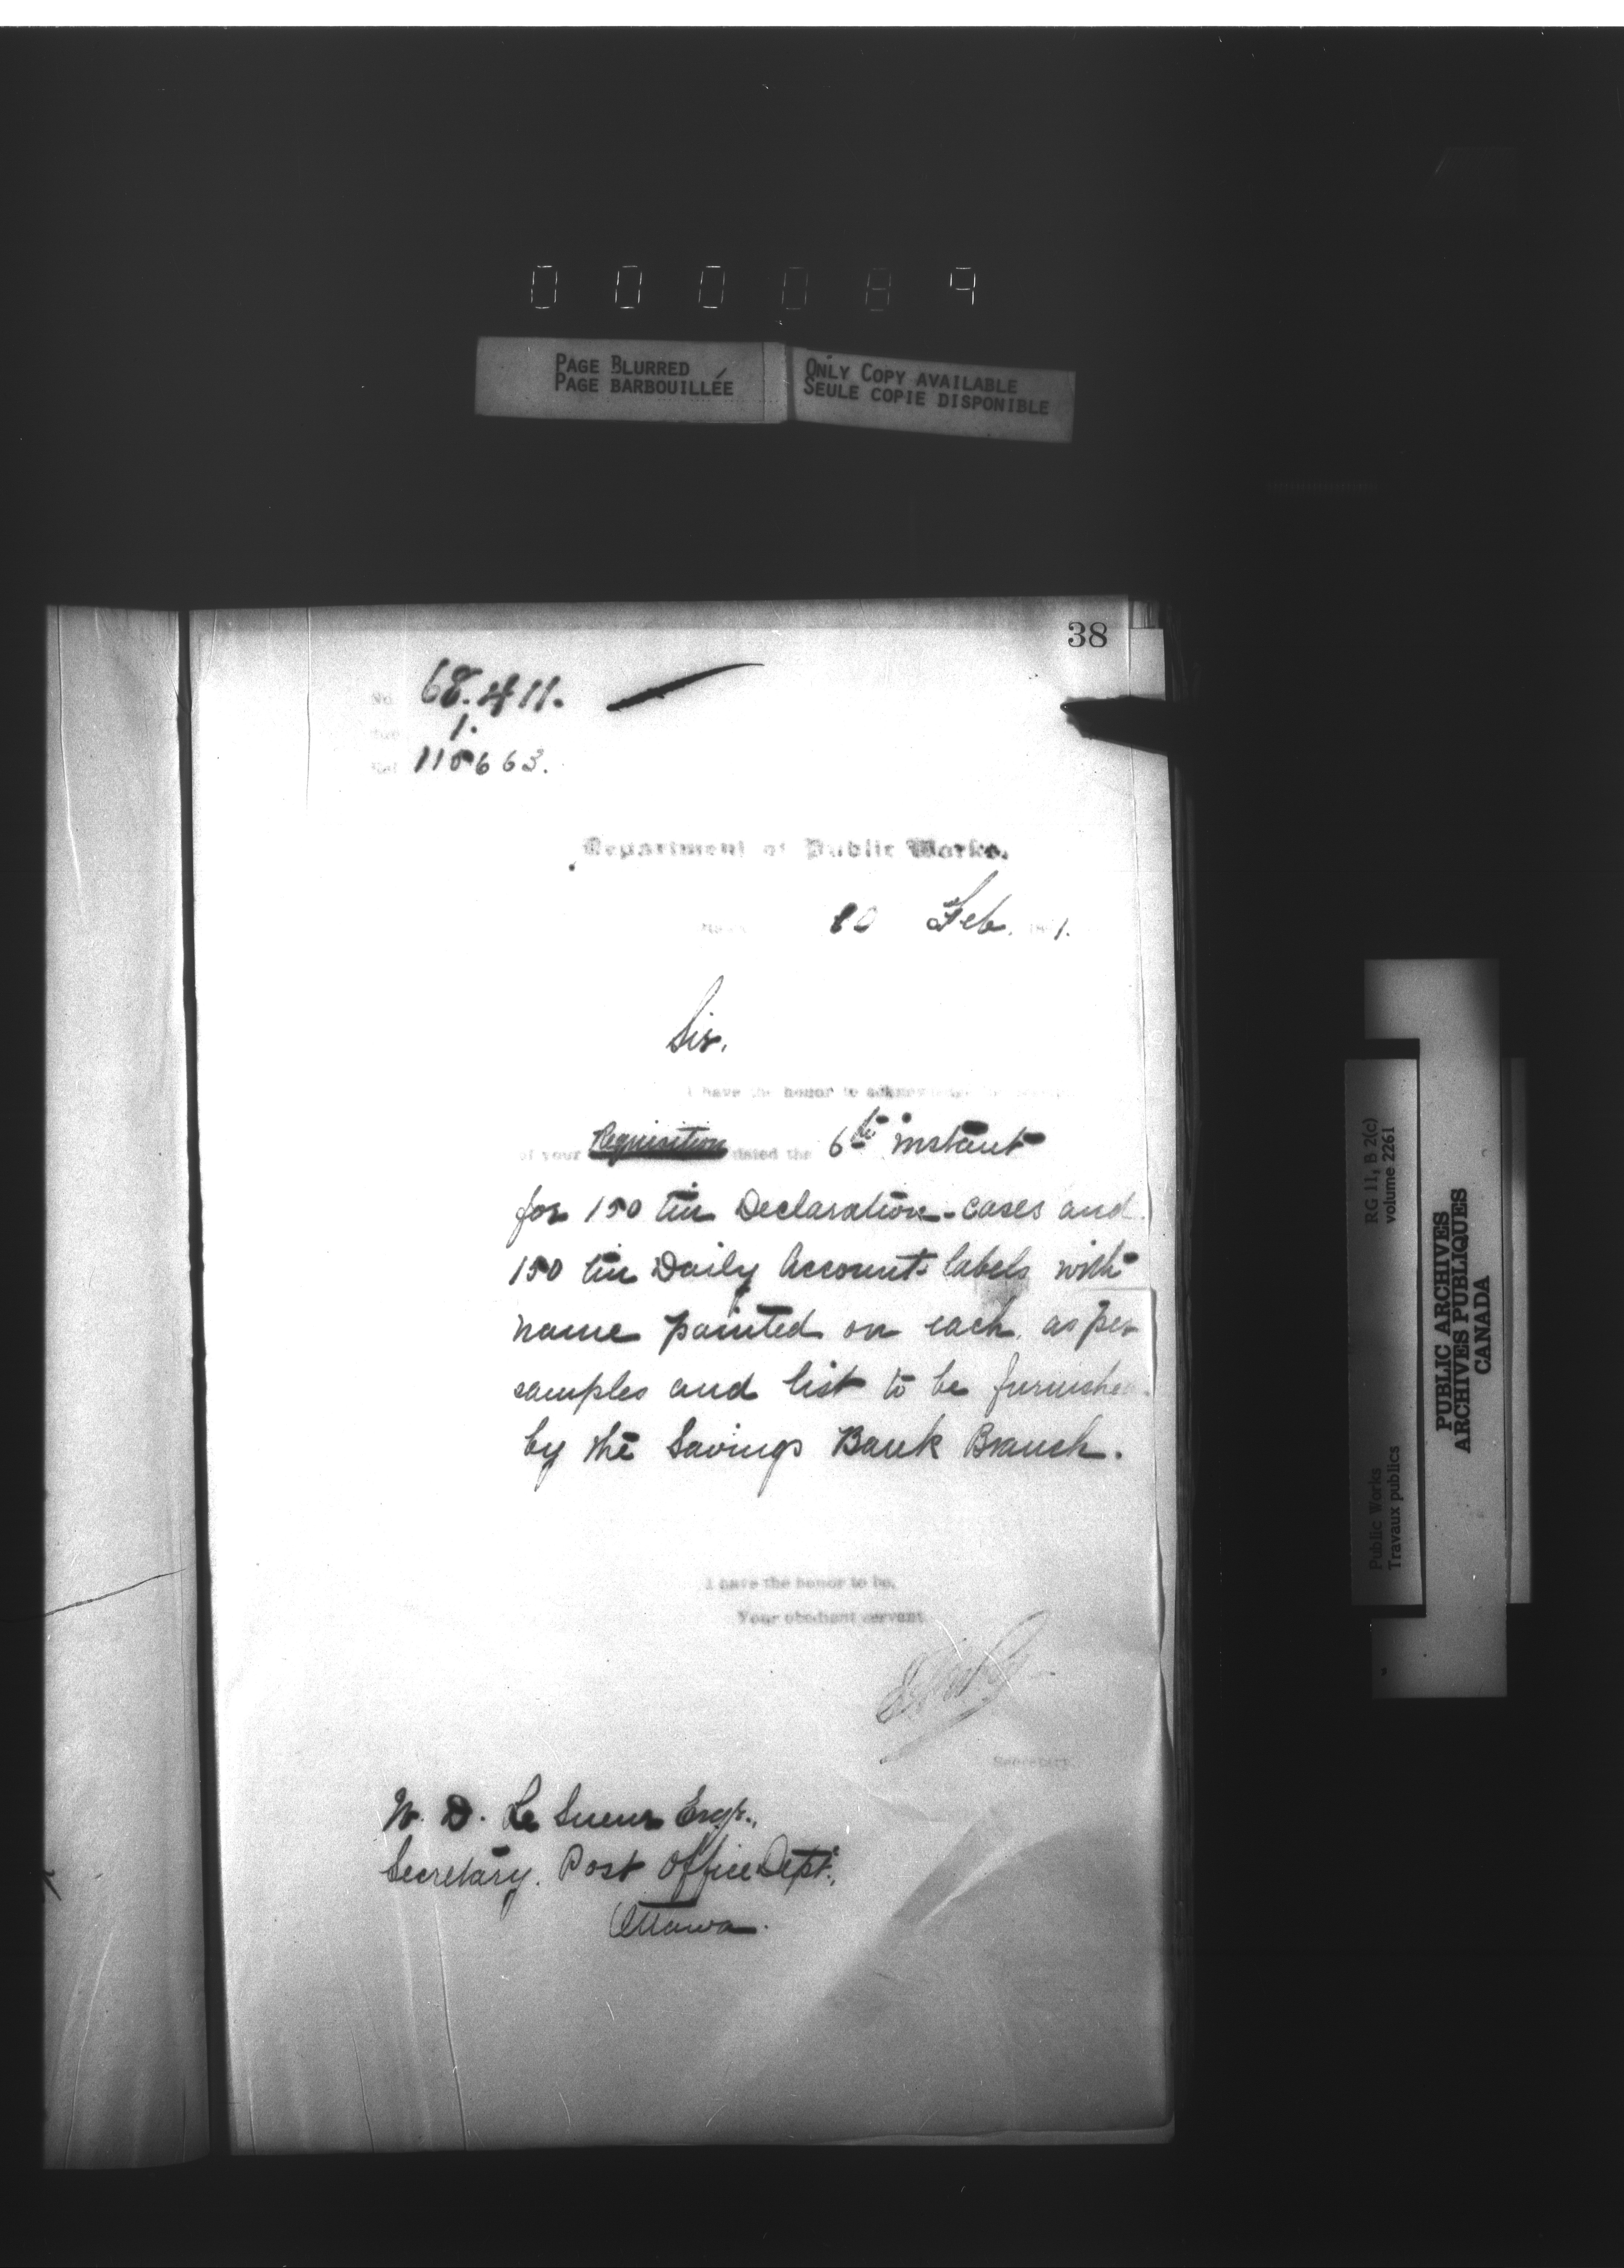 000089
PAGE BLURRED
PAGE BARBOUILLÉE
ONLY COPY AVAILABLE
SEULE COPIE DISPONIBLE
38
No. 68.411.
1.
115663.
Department of Public Works.
10 Feb. 1.
Sir,
I have the honor to acknowledge the
of your Requisition dated the 6th instant
for 150 tin Declaration-cases and
150 tin Daily Account-labels with
name painted on each, as per
samples and list to be furnished
by the Savings Bank Branch.
I have the honor to be,
Your obedient servant
Secretary
W. D. Le Sueur Esqr.,
Secretary. Post Office Dept.,
Ottawa.
RG 11, B 2(c)
volume 2261
Public Works
Travaux publics
PUBLIC ARCHIVES
ARCHIVES PUBLIQUES
CANADA